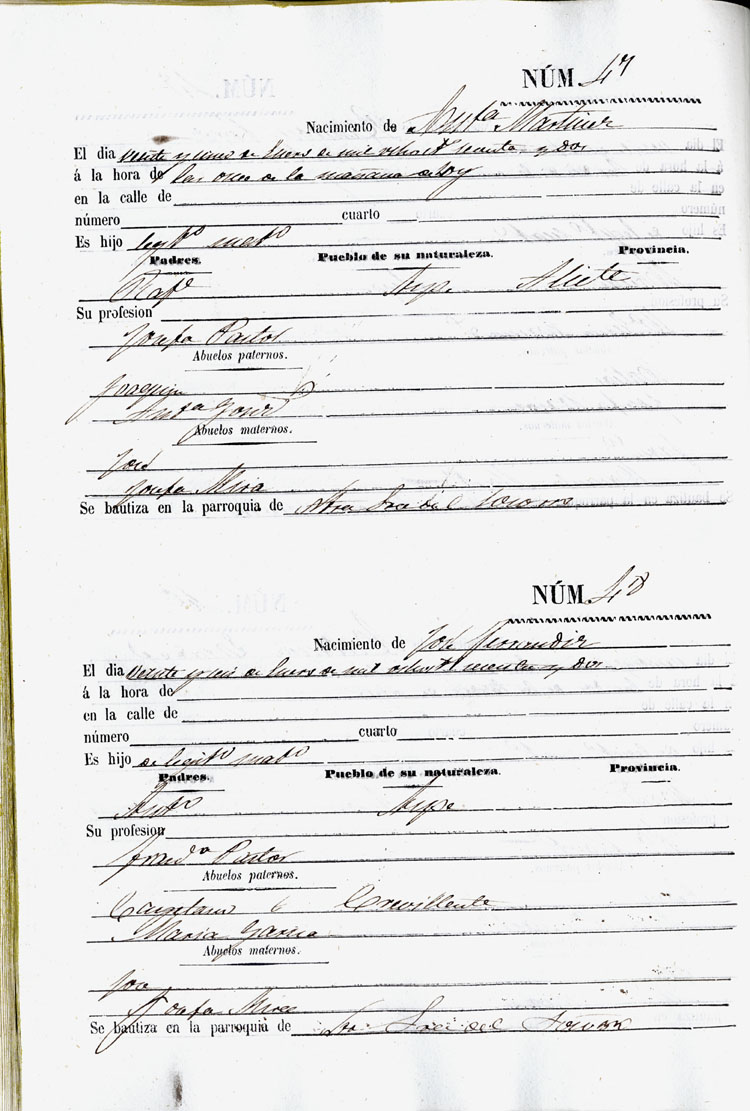 NÚM 47
Nacimiento de Antª Martinez
El dia veinte y uno de Enero de mil ochosts sesenta y dos
á la hora de las once de la mañana de hoy
en la calle de
número cuarto
Es hijo legitº matº
Padres. Pueblo de su naturaleza. Provincia.
Rafl Aspe Alicte
Su profesion
Josefa Pastor
Abuelos paternos.
Joaquin
Antª
Abuelos maternos.
José
Josefa Mira
Se bautiza en la parroquia de Ntra del Socorro
NÚM 48
Nacimiento de José Fernandez
El dia veinte y seis de Enero de mil ochost sesenta y dos
á la hora de
en la calle de
número cuarto
Es hijo de legitº matº
Padres. Pueblo de su naturaleza. Provincia.
Antº Aspe
Su profesion
Pastor
Abuelos paternos.
Cayetano Crevillente
Maria Garcia
Abuelos maternos.
Josefa Mira
Se bautiza en la parroquia de del Socorro